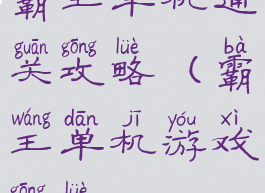 霸王单机通
guān gōng lüè bà
关攻略（霸
wáng dān jī yóu xì
王单机游戏
gōng lüè